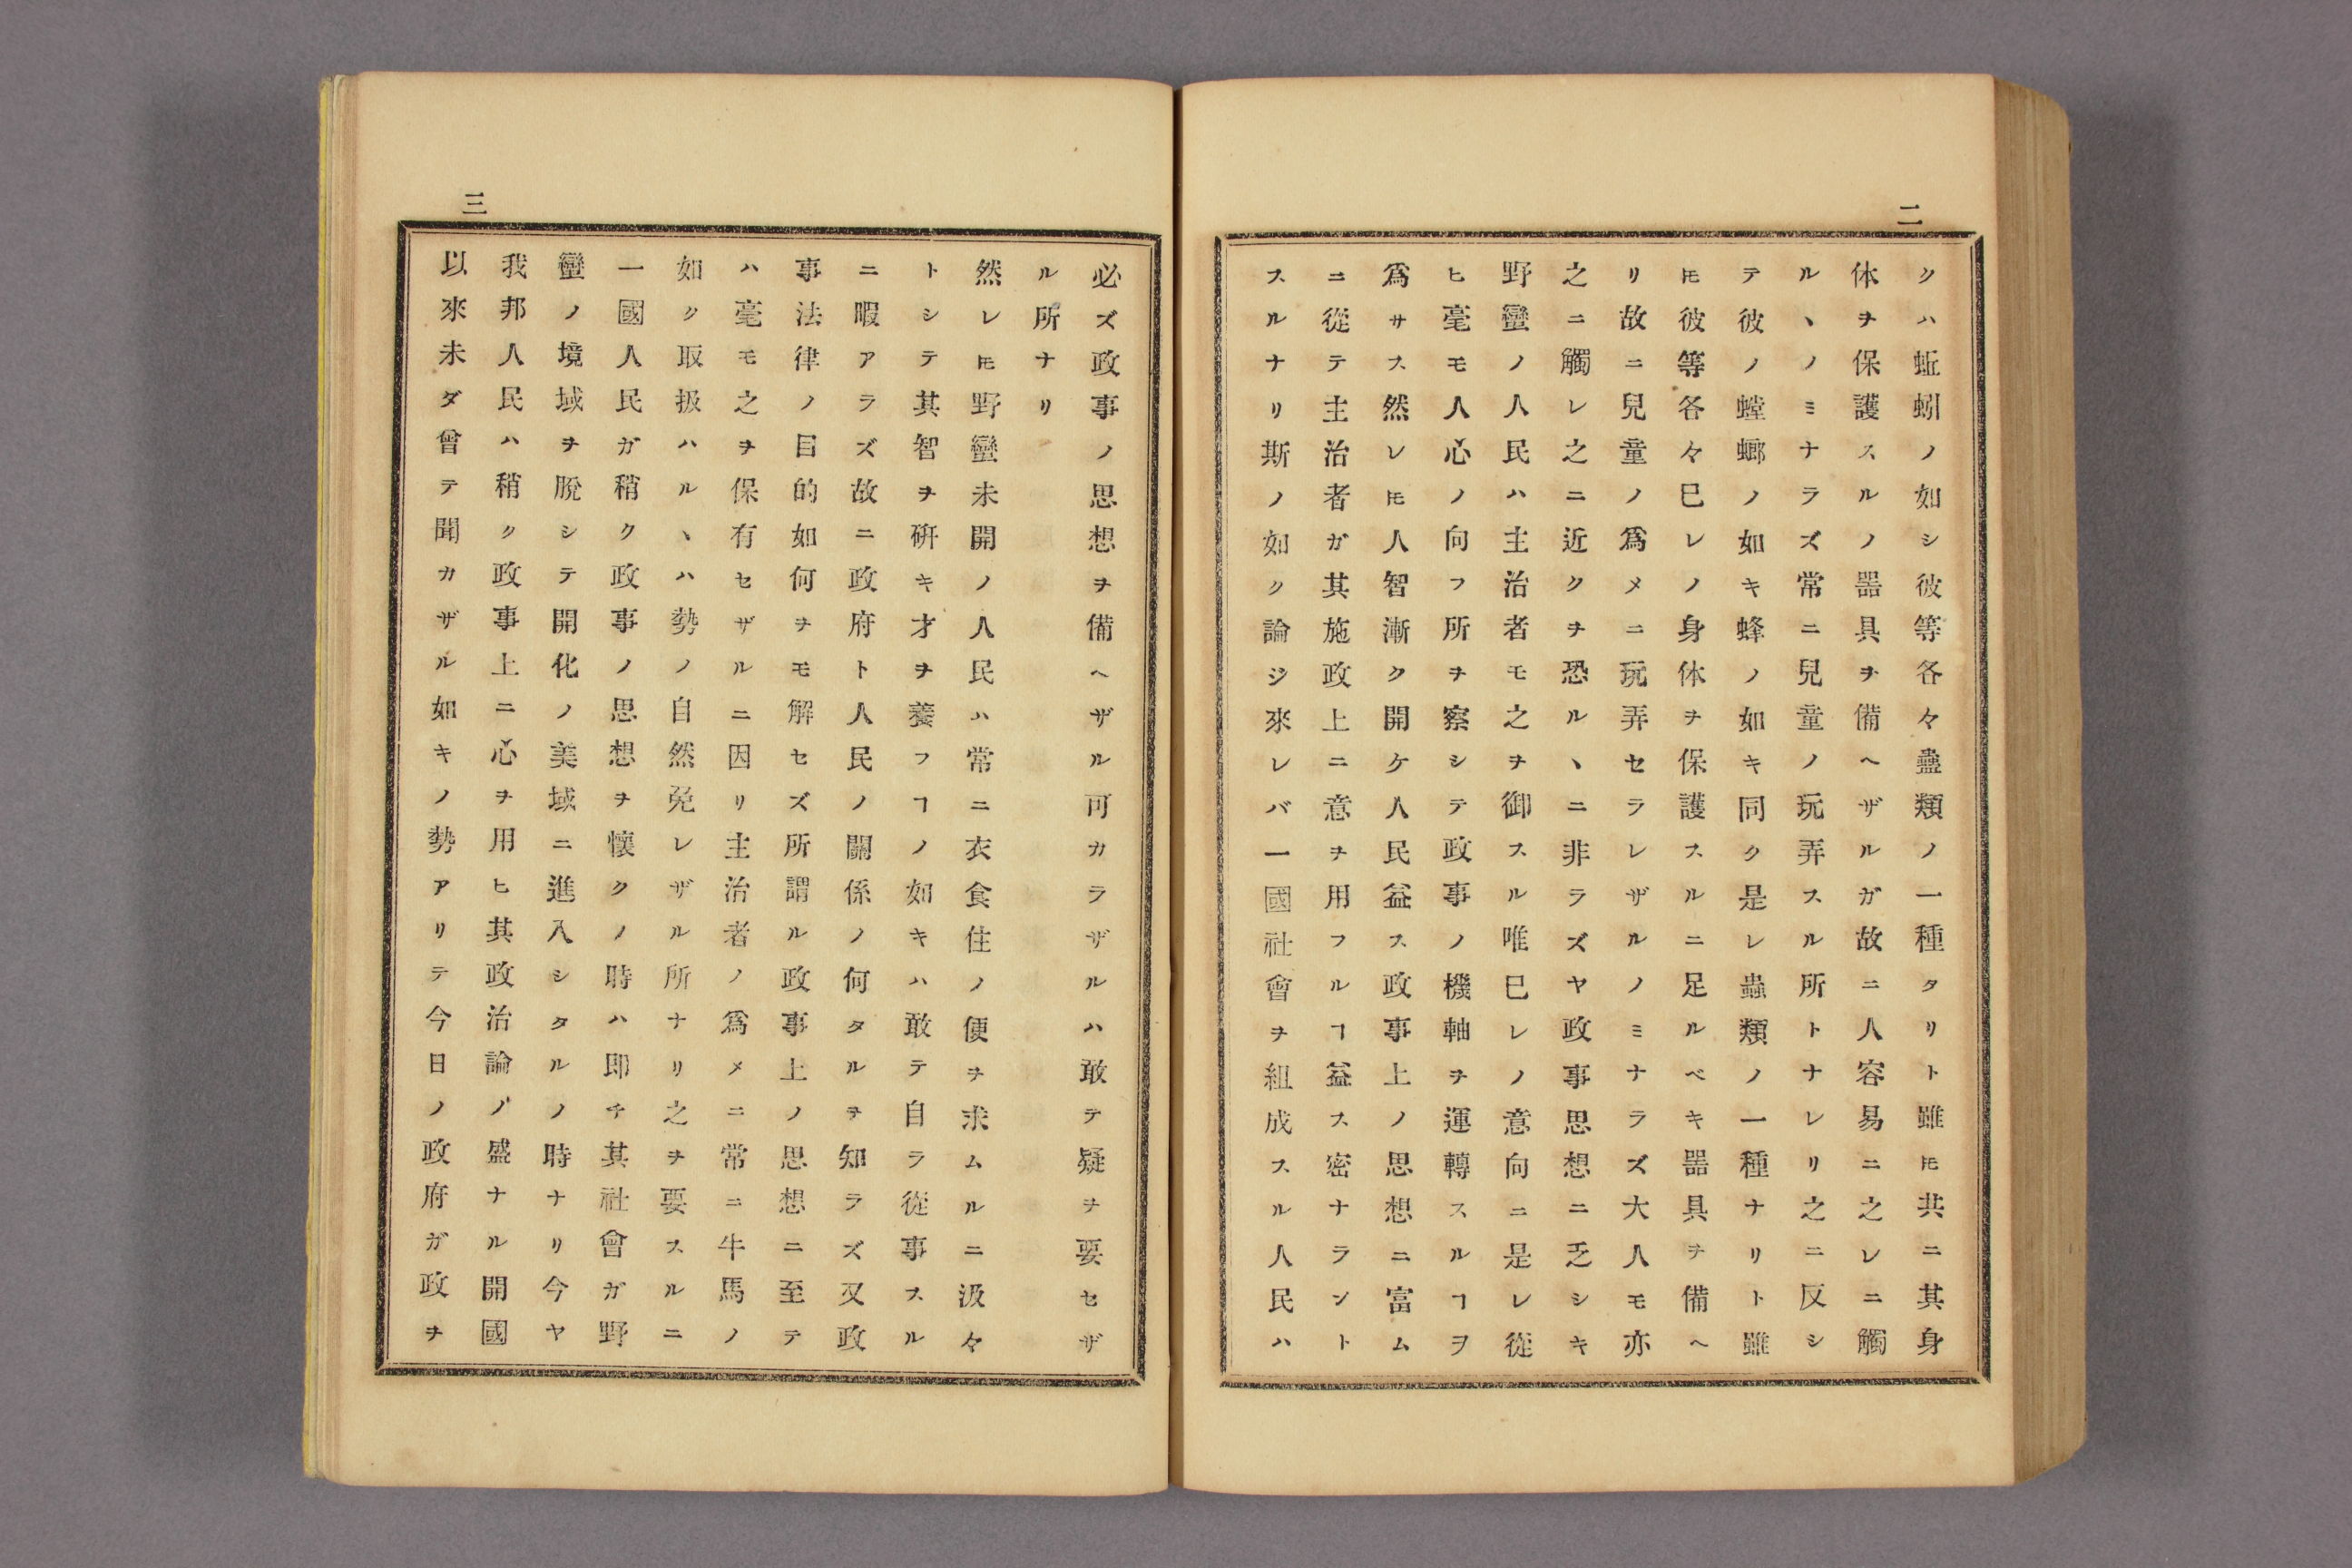 二
クハ蚯蚓ノ如シ彼等各々蠱類ノ一種タリト雖𪜈共ニ其身
体ヲ保護スルノ噐具ヲ備ヘザルガ故ニ人容易ニ之レニ觸
ルヽノミナラズ常ニ兒童ノ玩弄スル所トナレリ之ニ反シ
テ彼ノ螳螂ノ如キ蜂ノ如キ同ク是レ蟲類ノ一種ナリト雖
𪜈彼等各々巳レノ身体ヲ保護スルニ足ルベキ噐具ヲ備ヘ
リ故ニ兒童ノ爲メニ玩弄セラレザルノミナラズ大人モ亦
之ニ觸レ之ニ近クヲ恐ルヽニ非ラズヤ政事思想ニ乏シキ
野蠻ノ人民ハ主治者モ之ヲ御スル唯巳レノ意向ニ是レ從
ヒ毫モ人心ノ向フ所ヲ察シテ政事ノ機軸ヲ運轉スルヿヲ
爲サス然レ𪜈人智漸ク開ケ人民益ス政事上ノ思想ニ富ム
ニ從テ主治者ガ其施政上ニ意ヲ用フルヿ益ス密ナラント
スルナリ斯ノ如ク論ジ來レバ一國社會ヲ組成スル人民ハ
三
必ズ政事ノ思想ヲ備ヘザル可カラザルハ敢テ疑ヲ要セザ
ル所ナリ
然レ𪜈野蠻未開ノ人民ハ常ニ衣食住ノ便ヲ求ムルニ汲々
トシテ其智ヲ硏キ才ヲ養フヿノ如キハ敢テ自ラ從事スル
ニ暇アラズ故ニ政府ト人民ノ關係ノ何タルヲ知ラズ又政
事法律ノ目的如何ヲモ解セズ所謂ル政事上ノ思想ニ至テ
ハ毫モ之ヲ保有セザルニ因リ主治者ノ爲メニ常ニ牛馬ノ
如ク取扱ハルヽハ勢ノ自然免レザル所ナリ之ヲ要スルニ
一國人民ガ稍ク政事ノ思想ヲ懷クノ時ハ即チ其社會ガ野
蠻ノ境域ヲ脫シテ開化ノ美域ニ進入シタルノ時ナリ今ヤ
我邦人民ハ稍ク政事上ニ心ヲ用ヒ其政治論ノ盛ナル開國
以來未ダ曾テ聞カザル如キノ勢アリテ今日ノ政府ガ政ヲ